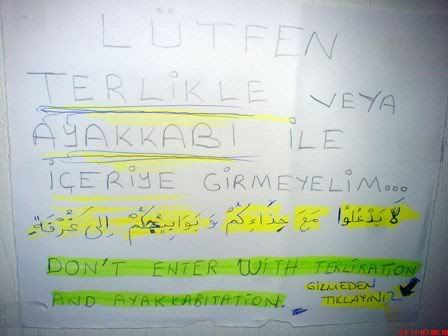 LÜTFEN
TERLİKLE VEYA
AYAKKABI İLE
İÇERİYE GİRMEYELİM...
لَا يَدْخُلُوا مَعَ حِذَاءِكُمْ وَ بَوَابِيجُكُمْ اِلَى غُرْفَةٍ
DON'T ENTER WITH TERLIKATION
AND AYAKKABITATION.
GİRMEDEN
TIKLAYINIZ